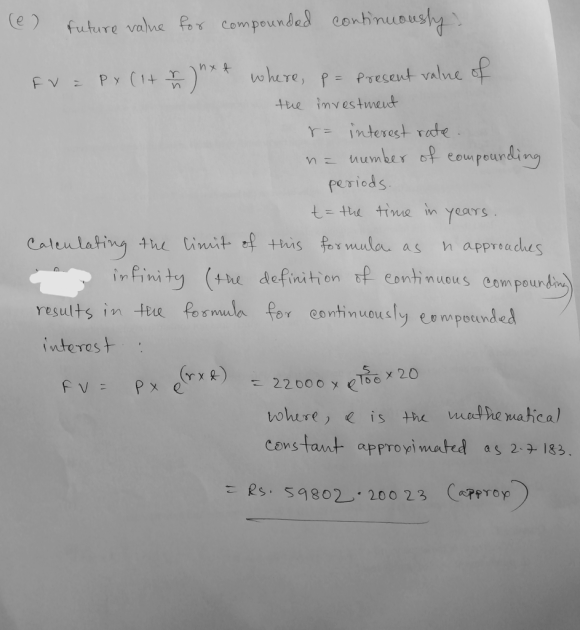 (e) future value for compounded continuously:
FV = P × (1 + r/n)^(n×t) where, P = Present value of
the investment
r = interest rate.
n = number of compounding
periods.
t = the time in years.
Calculating the limit of this formula as n approaches
infinity (the definition of continuous compounding)
results in the formula for continuously compounded
interest :
FV = P × e^(r×t) = 22000 × e^(5/100 × 20)
where, e is the mathematical
constant approximated as 2.7183.
= Rs. 59802.20023 (approx)